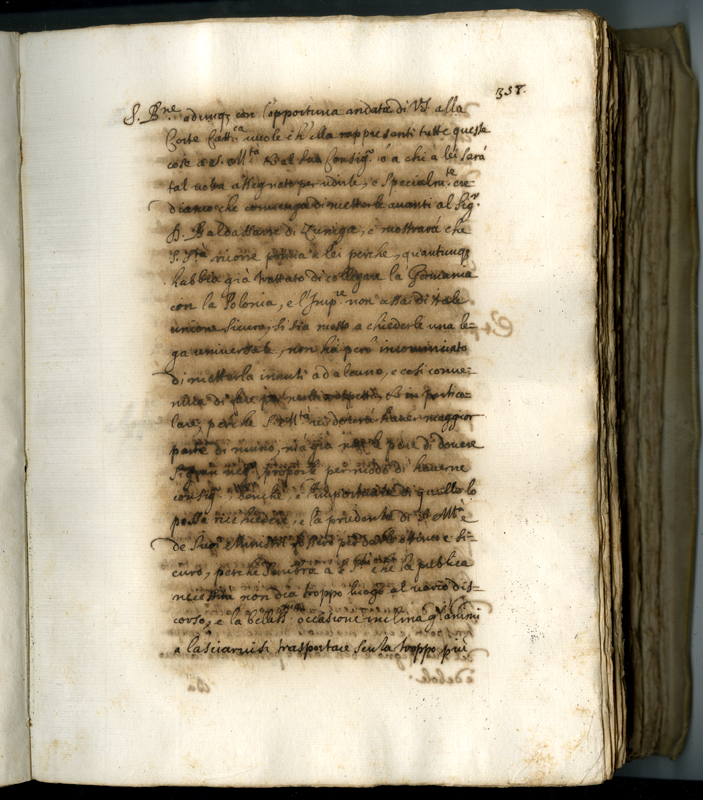 358.
S. Bne. adunq; con l'opportuna andata di VS alla
Corte Catt.ca vuole ch'ella rappresenti tutte queste
cose a S. Mtà et al suo Consig.o ó a chi a lei sará
tal uolta assegnato per udirle, e specialm.te cre-
diamo che conuenga di metterle auanti al Sig.r
D. Baldassarre di Zuniga, e mostrará che
S. Stà ricorre prima a lei perche, quantunq;
habbia giá trattato di collegare la Germania
con la Polonia, e l'Imp.re non assa di tale
unione sicuro, si sia messo a chiederle una le-
ga uniuersale, non há peró incominciato
di metterla inanti ad alcuno, e cosi conue-
niua di fare per molti rispetti, et in partico-
lare, perche S. Mtà ne douerá hauer maggior
parte di niuno, má giá
proporle per modo di hauerne
consig.o, benche, e l'importanza di quello lo
possa richiedere, e la prudenza di S. Mtà e
de Suoi Ministri
curo, perche sembra a S. Stà che la publica
necessitá non dia troppo luogo al uario dis-
corso, e la occasione inclina gl'animi
a lasciaruisi trasportare senza troppo piú